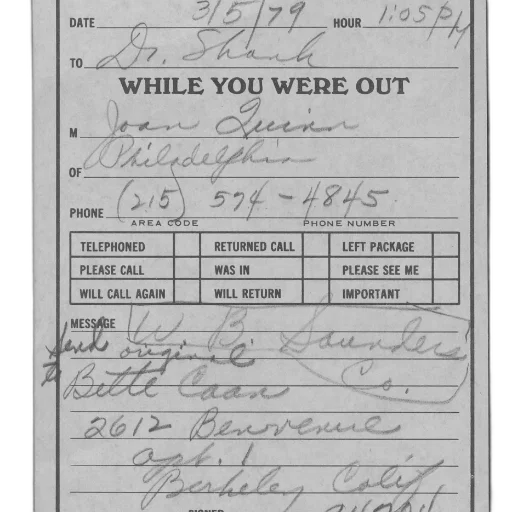 DATE 3/5/79 HOUR 1:05 PM
TO Dr. Shank
WHILE YOU WERE OUT
M Joan Quinn
OF Philadelphia
PHONE (215) 574-4845
AREA CODE PHONE NUMBER
TELEPHONED RETURNED CALL LEFT PACKAGE
PLEASE CALL WAS IN PLEASE SEE ME
WILL CALL AGAIN WILL RETURN IMPORTANT
MESSAGE W. B. Saunders
Send original
to Bette Caan Co.
2612 Benvenue
apt. 1
Berkeley Calif
SIGNED